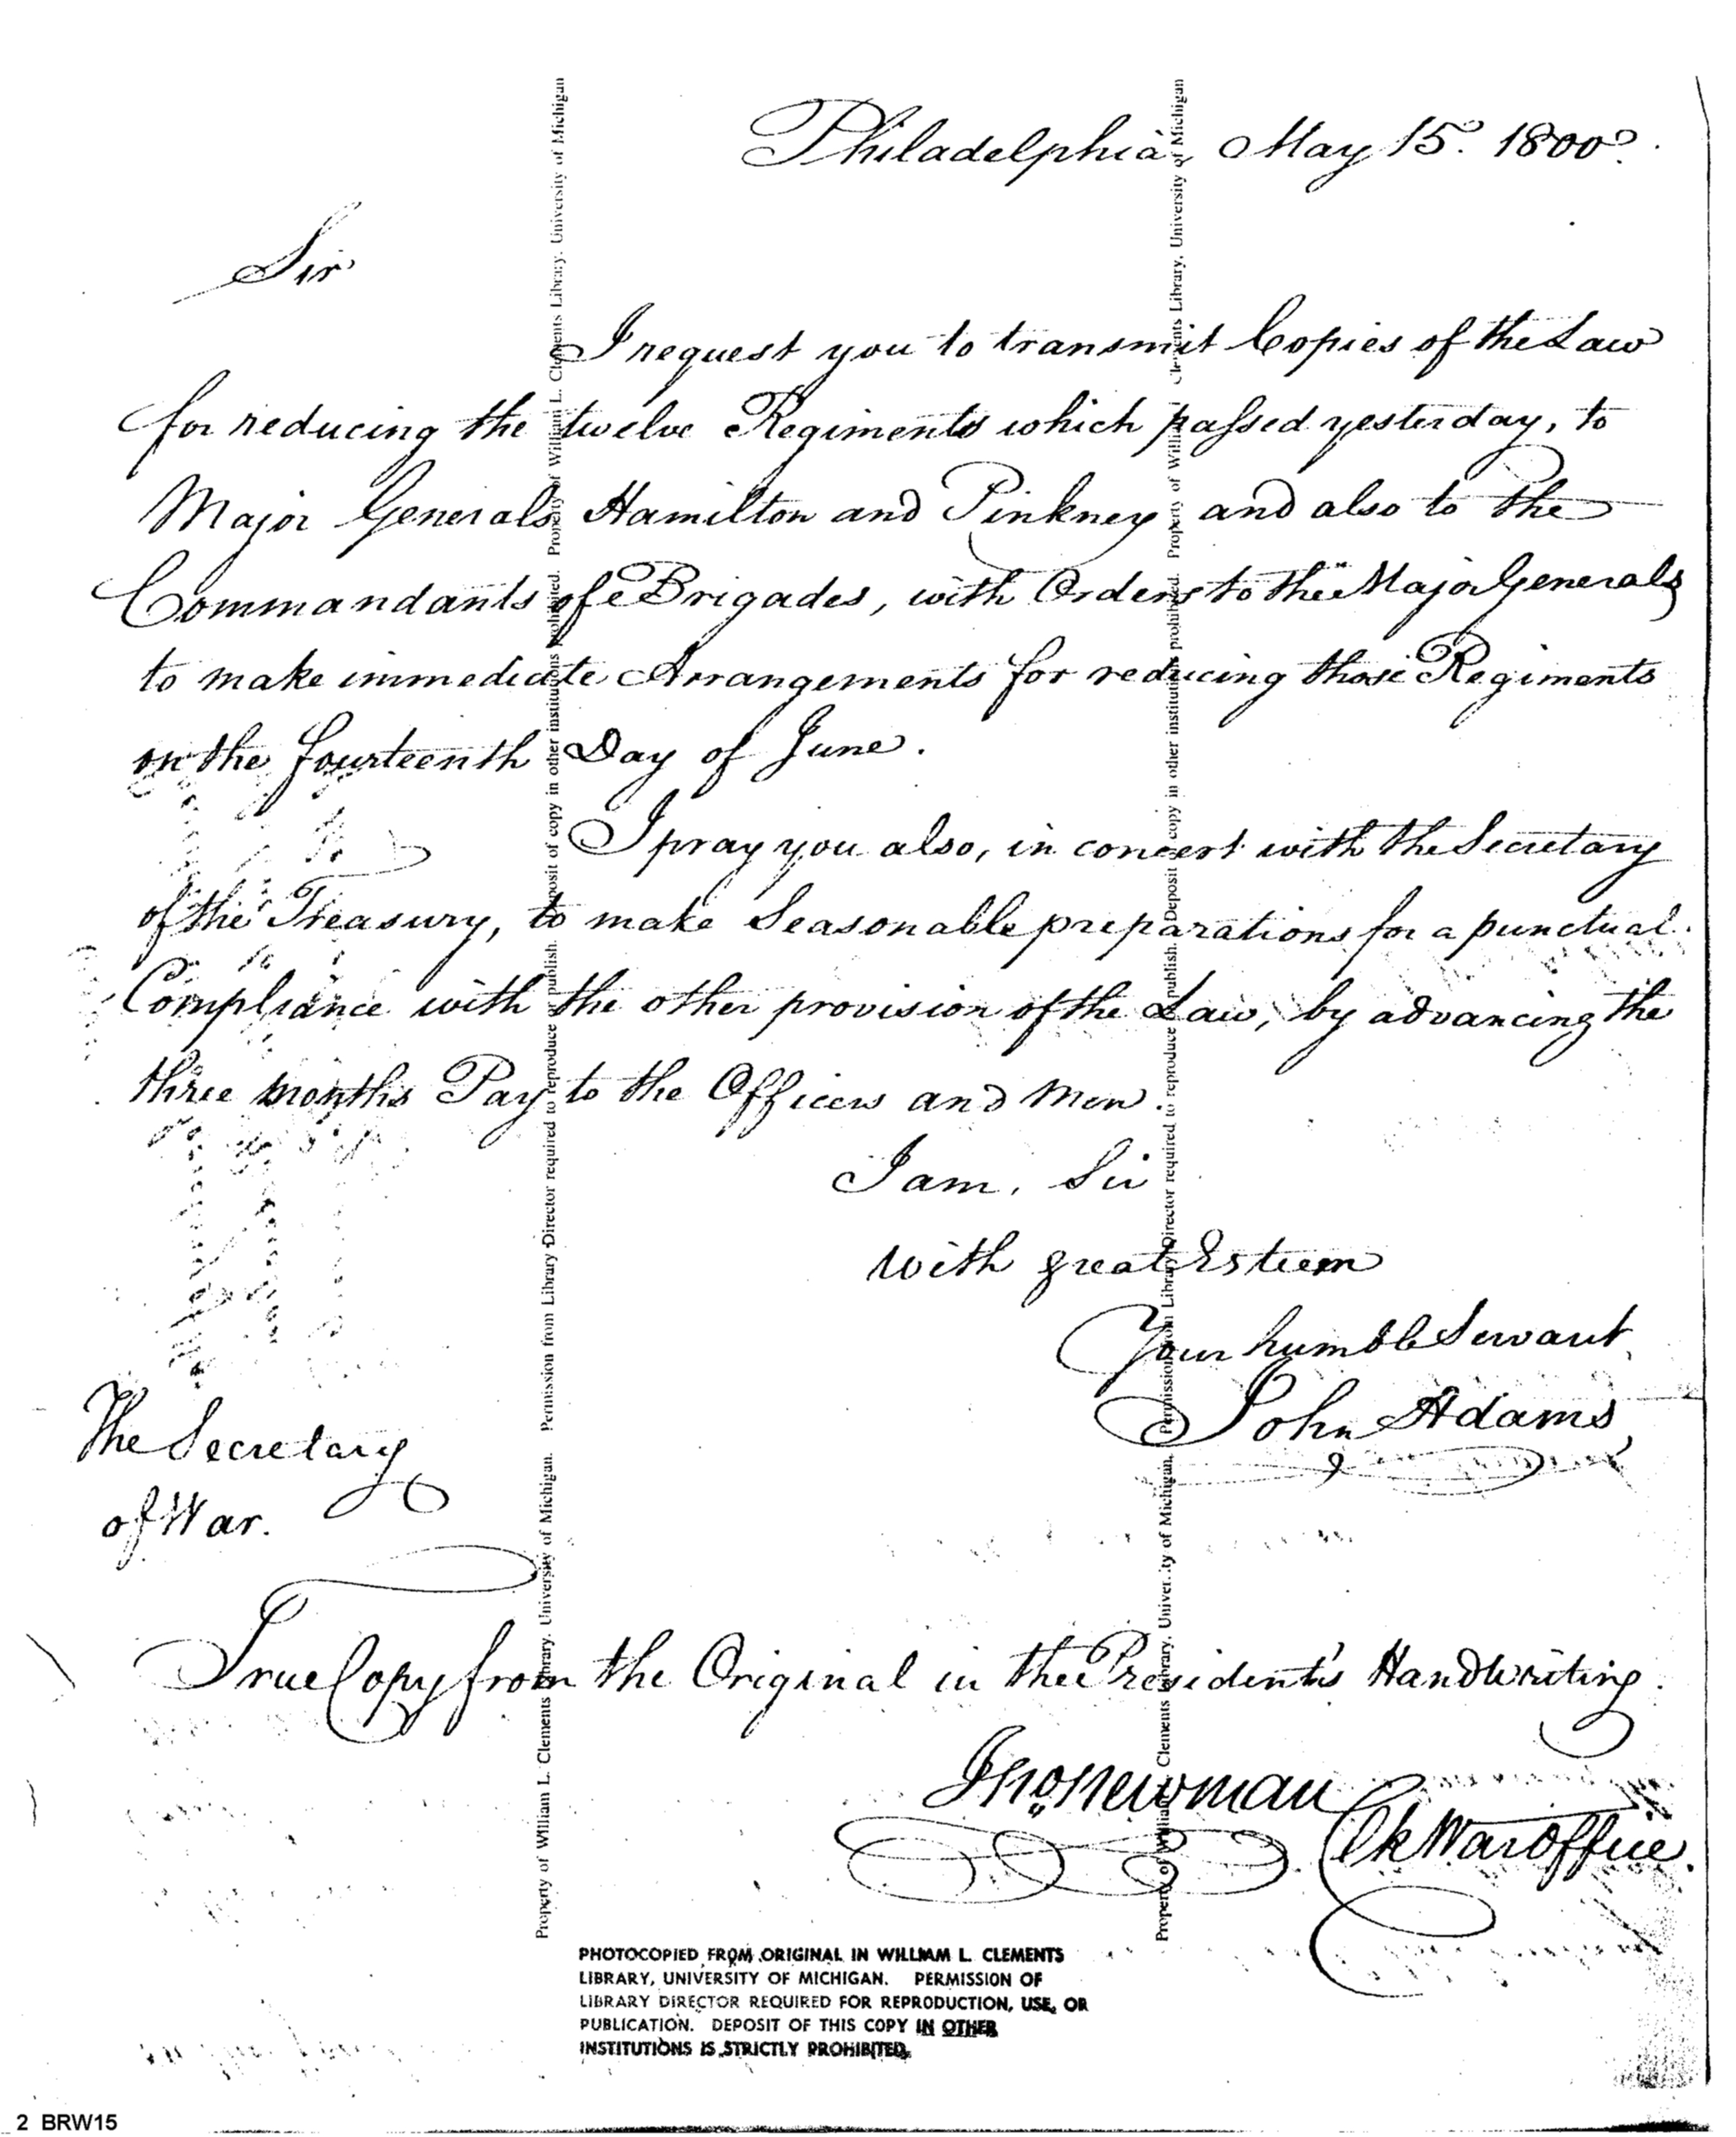 Philadelphia, May 15. 1800.
Sir
I request you to transmit Copies of the Law
for reducing the twelve Regiments which passed yesterday, to
Major Generals Hamilton and Pinkney and also to the
Commandants of Brigades, with Orders to the Major Generals
to make immediate Arrangements for reducing those Regiments
on the fourteenth Day of June.
I pray you also, in concert with the Secretary
of the Treasury, to make Seasonable preparations for a punctual
Compliance with the other provision of the Law, by advancing the
three months Pay to the Officers and Men.
I am, Sir
with great Esteem
Your humble Servant
John Adams
The Secretary
of War.
True Copy from the Original in the President's Handwriting.
Tho. Newman
Clk War Office.
Property of William L. Clements Library, University of Michigan. Permission from Library Director required to reproduce or publish. Deposit of copy in other institutions prohibited. Property of William L. Clements Library, University of Michigan
Property of William L. Clements Library, University of Michigan. Permission from Library Director required to reproduce or publish. Deposit of copy in other institutions prohibited. Property of William L. Clements Library, University of Michigan
PHOTOCOPIED FROM ORIGINAL IN WILLIAM L. CLEMENTS
LIBRARY, UNIVERSITY OF MICHIGAN. PERMISSION OF
LIBRARY DIRECTOR REQUIRED FOR REPRODUCTION, USE, OR
PUBLICATION. DEPOSIT OF THIS COPY IN OTHER
INSTITUTIONS IS STRICTLY PROHIBITED.
2 BRW15